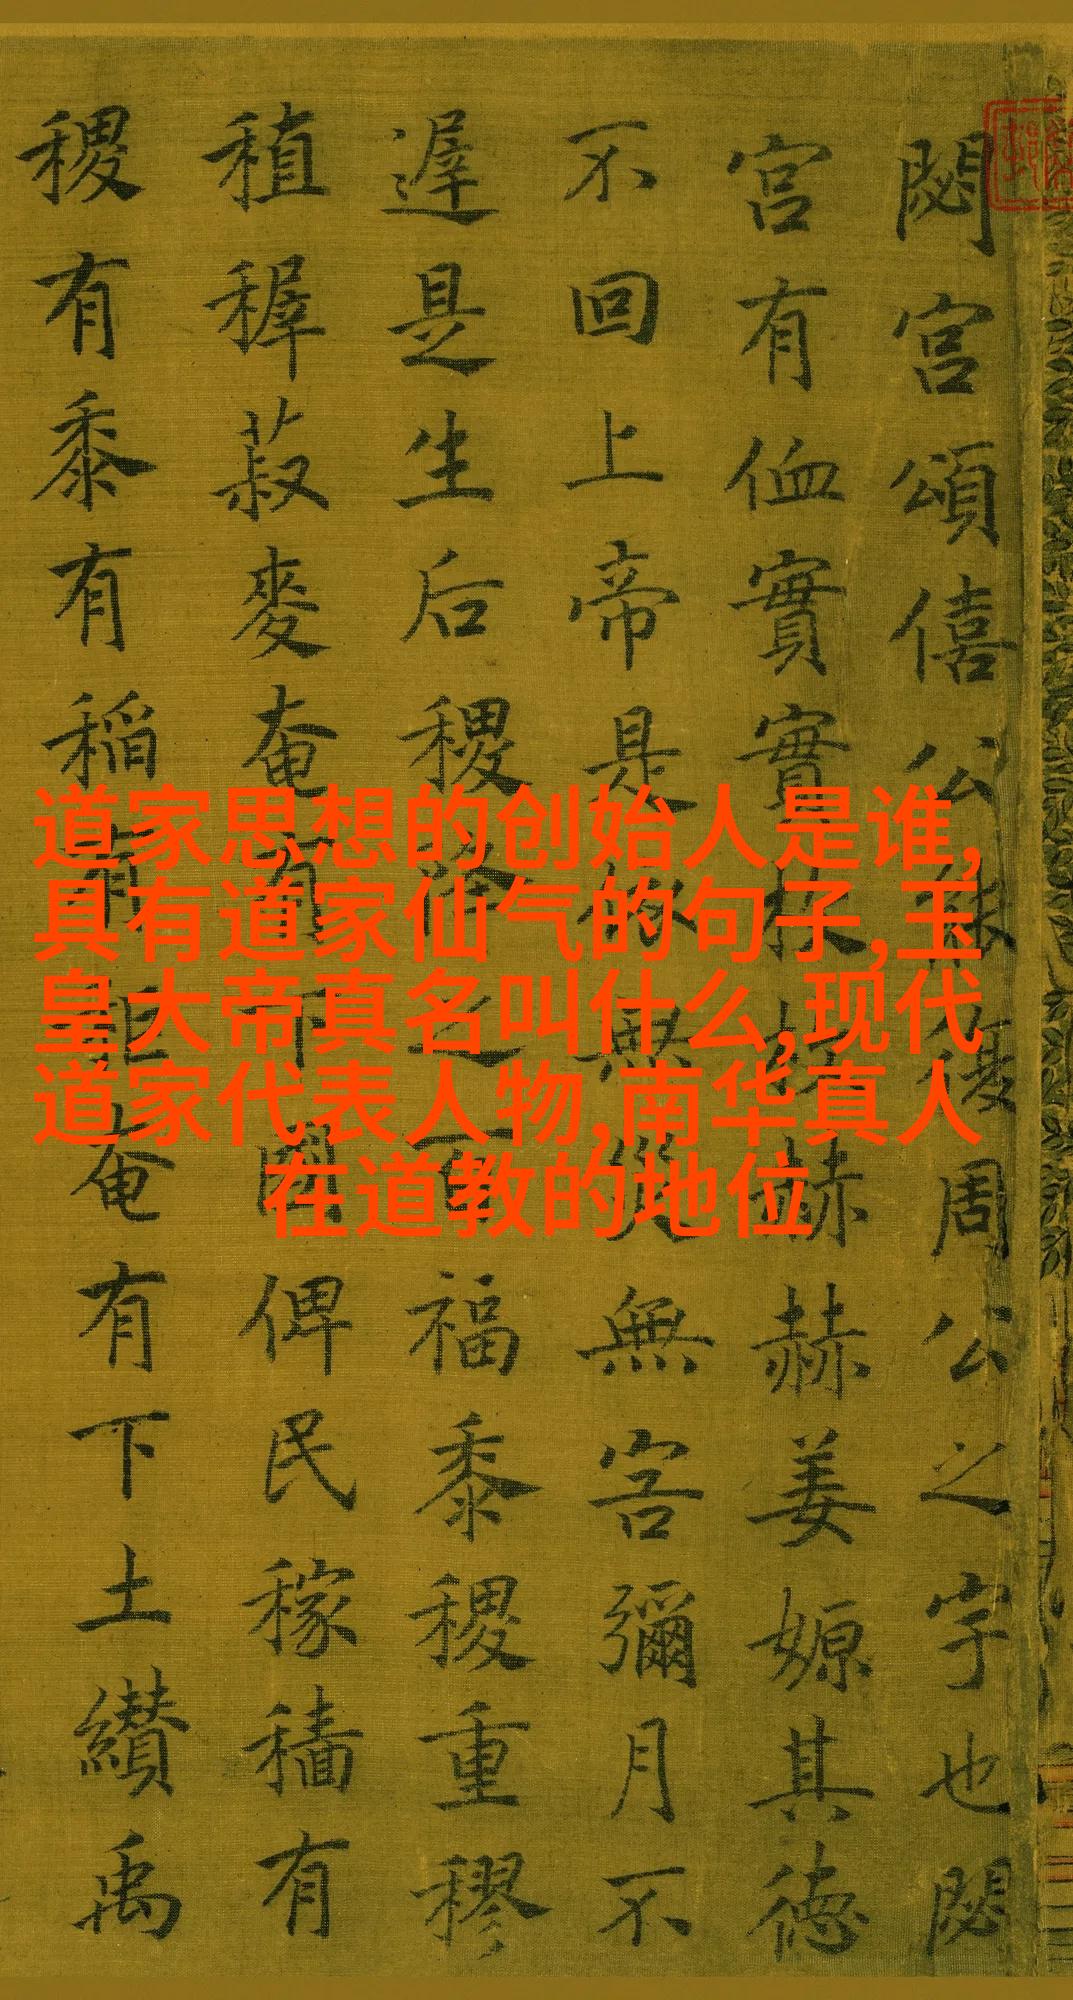 道家思想的创始人是谁,
具有道家仙气的句子,玉
皇大帝真名叫什么,现代
道家代表人物,南华真人
在道教的地位
閟宮頌僖公能復周公之宇也閟
宮有侐實實枚枚赫赫姜嫄其德
不回上帝是依無災無害彌月不
遲是生后稷降之百福黍稷重穋
稙稺菽麥奄有下國俾民稼穡有
稷有黍有稻有秬奄有下土纘禹